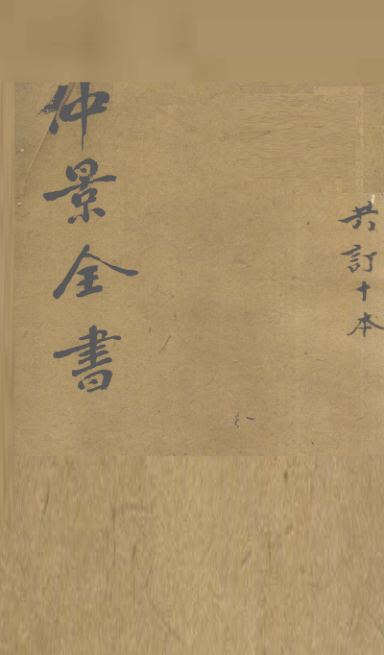 共訂十本
仲景全書